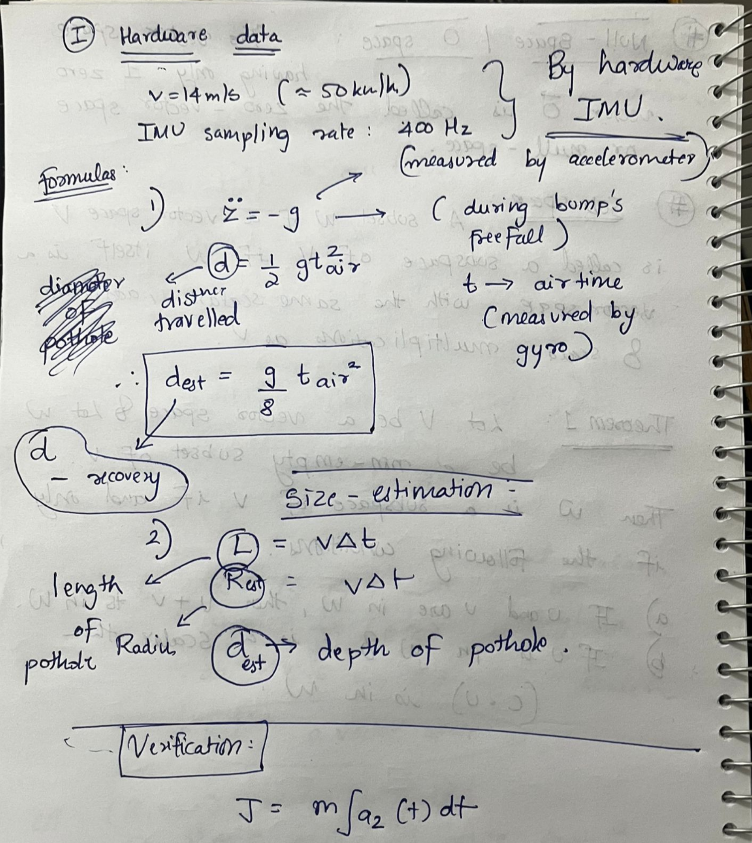 I Hardware data
v = 14 m/s (≈ 50 km/h)
IMU sampling rate : 400 Hz
} By hardware
IMU.
(measured by accelerometer)
formulas :
1) z̈ = -g → ( during bump's
free fall )
d = 1/2 g t²air
distner
travelled
t → air time
(measured by
gyro)
∴ dest = g/8 t air²
d
- recovery
Size - estimation :
2) L = vΔt
length
of
pothole
Rest = vΔt
Radius
dest → depth of pothole .
Verification :
J = m∫a₂ (t) dt